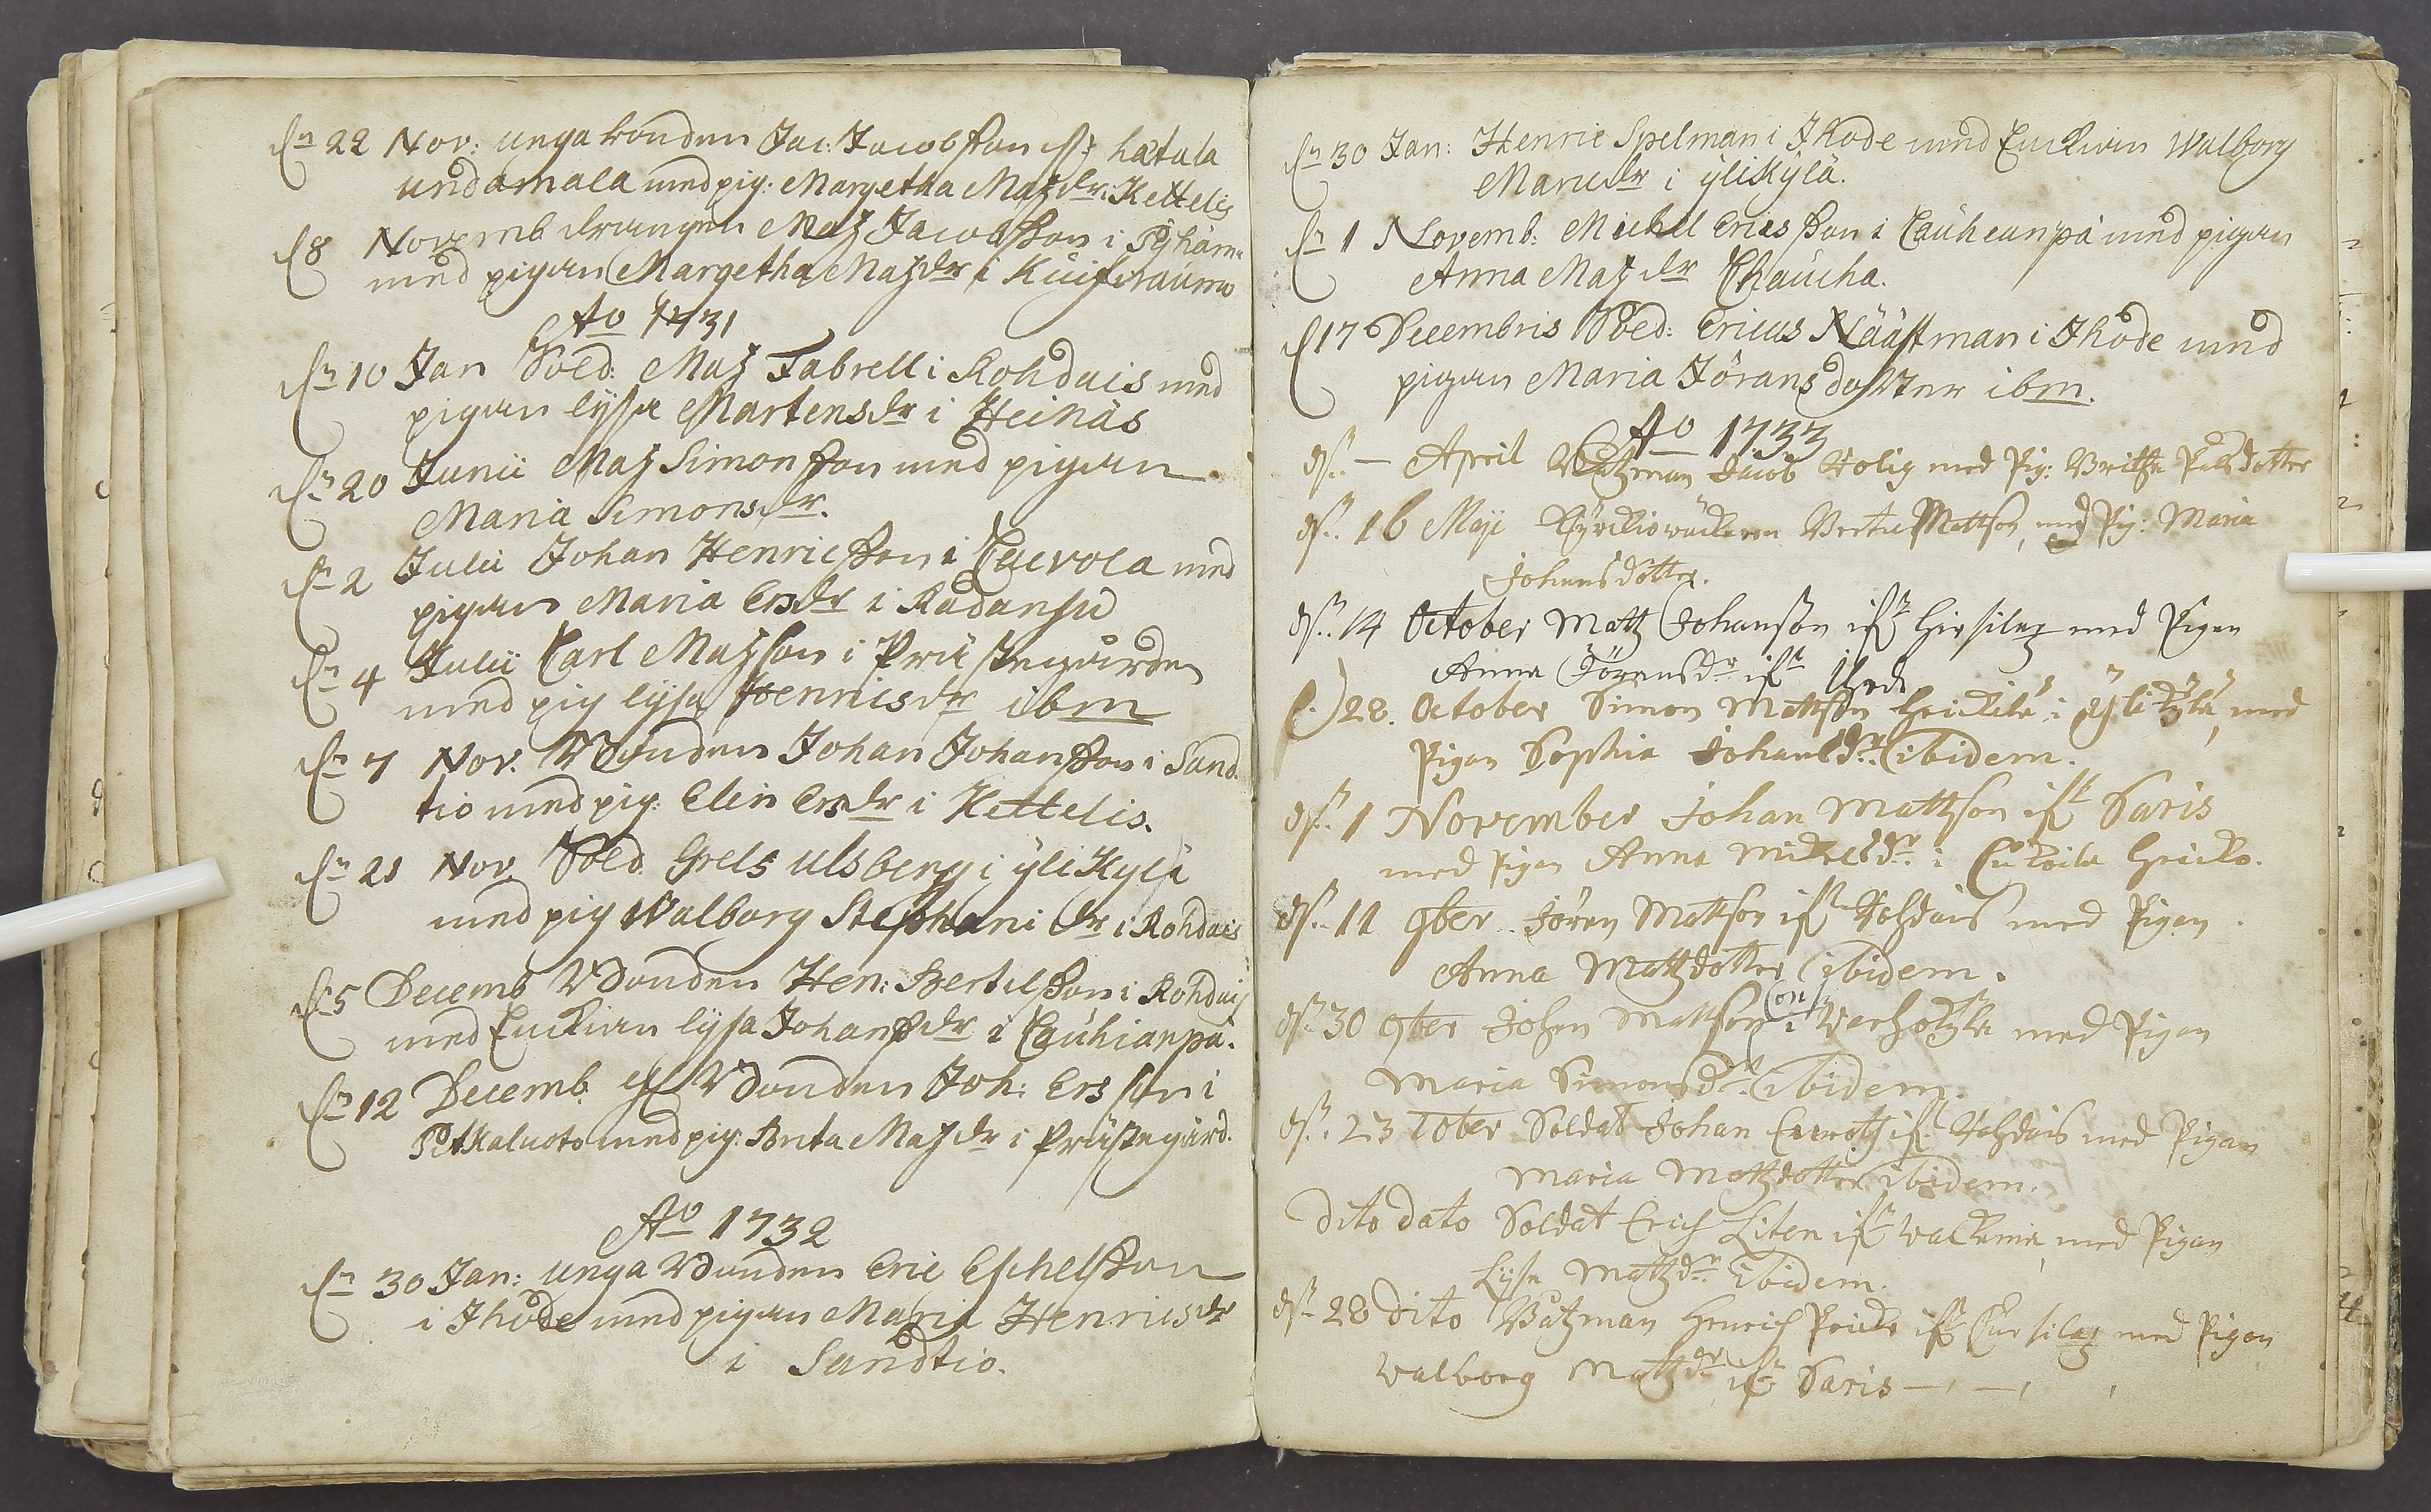 dn 22 Nov: unga bonden Jac: Jacobsson fr: hatala
undamala med pig: Margetha Matzdr: Kettelis
d 8 Novemb drangen Matz Jacobsson i Pyhäm
med pigan Margetha Matzdr i Kuifwraumo
Ao 1731
dn 10 Jan Sold: Matz Tabrell i Rohdais med
pigan lijsa Martensdr i Heinäs
dn 20 Junii Matz Simonsson med pigan
Maria Simonsdr.
dn 2 Julii Johan Henricsson i Caevola med
pigan Maria Ersdr i Radansu
dn 4 Julii Carl Matzson i Prästegården
med pig lijsa Henricsdr ibm
dn 7 Nov. Bonden Johan Johansson i Sand
tio med pig: Elin Ersdr i Kettelis.
dn 21 Nov. Sold. Grels Ulsberg i ÿliKylä
med pig Walborg Stephani dr i Rohdais
d 5 Decemb Bonden Hen: Bertilsson i Rohdais
med Enckian lijsa Johansdr i Cauhianpä.
dn 12 Decemb. Bonden Joh: Ersson i
Petkaluoto med pig: Brita Matzdr i Prästegård.
Ao 1732
dn 30 Jan: unga Bonden Eric Eschelsson
i Jhode med pigan Maria Henricsdr
i Sandtio.
dn 30 Jan: Henric Spelman i Jhode med Enckian Walborg
Marcusdr i ÿliKÿlä.
dn 1 Novemb: Michel Ericsson i Cauheanpä med pigan
Anna Matzdr Chaucha.
d 17 Decembris Sold: Ericus Näästman i Jhode med
pigan Maria Jöransdotter ibm.
Ao 1733
dn. — April Båtzman Jacob Rolig med Pig: Britha Pålsdotter
dn. 16 Maji Kyrkiowäcktaren Bertil Mattson, med Pig: Maria
Johansdotter.
dn. 14 October Matz Johansson ifr Hirsiläz med Pigan
Anna Jöransdr ifr Jhode
(-) 28. October Simon Mattson Heickilä i Ylikylä, med
Pigan Sophia Johansdr. ibidem.
dn. 1 November Johan Mattson ifr Saris
med Pigan Anna Mickelsdr. i
dn. 11 9ber. Jören Mattson ifr Rohdais med Pigan
Anna Mattzdotter ibidem.
dn 30 9ber Johan Mattson i Warhokylä med Pigan
Maria Simonsdr. ibidem.
dn. 23 10ber Soldat Johan ifr Rohdais med Pigan
Maria Mattzdotter ibidem.
Dito Dato Soldat Erich Liten ifr Walkmia, med Pigan
Lijsa Mattzdr ibidem.
dn 28 Dito Båtzman Henrich Pricke ifr Hirsiläz med Pigan
Walborg Mattzdr ifr Saris —, —, ,